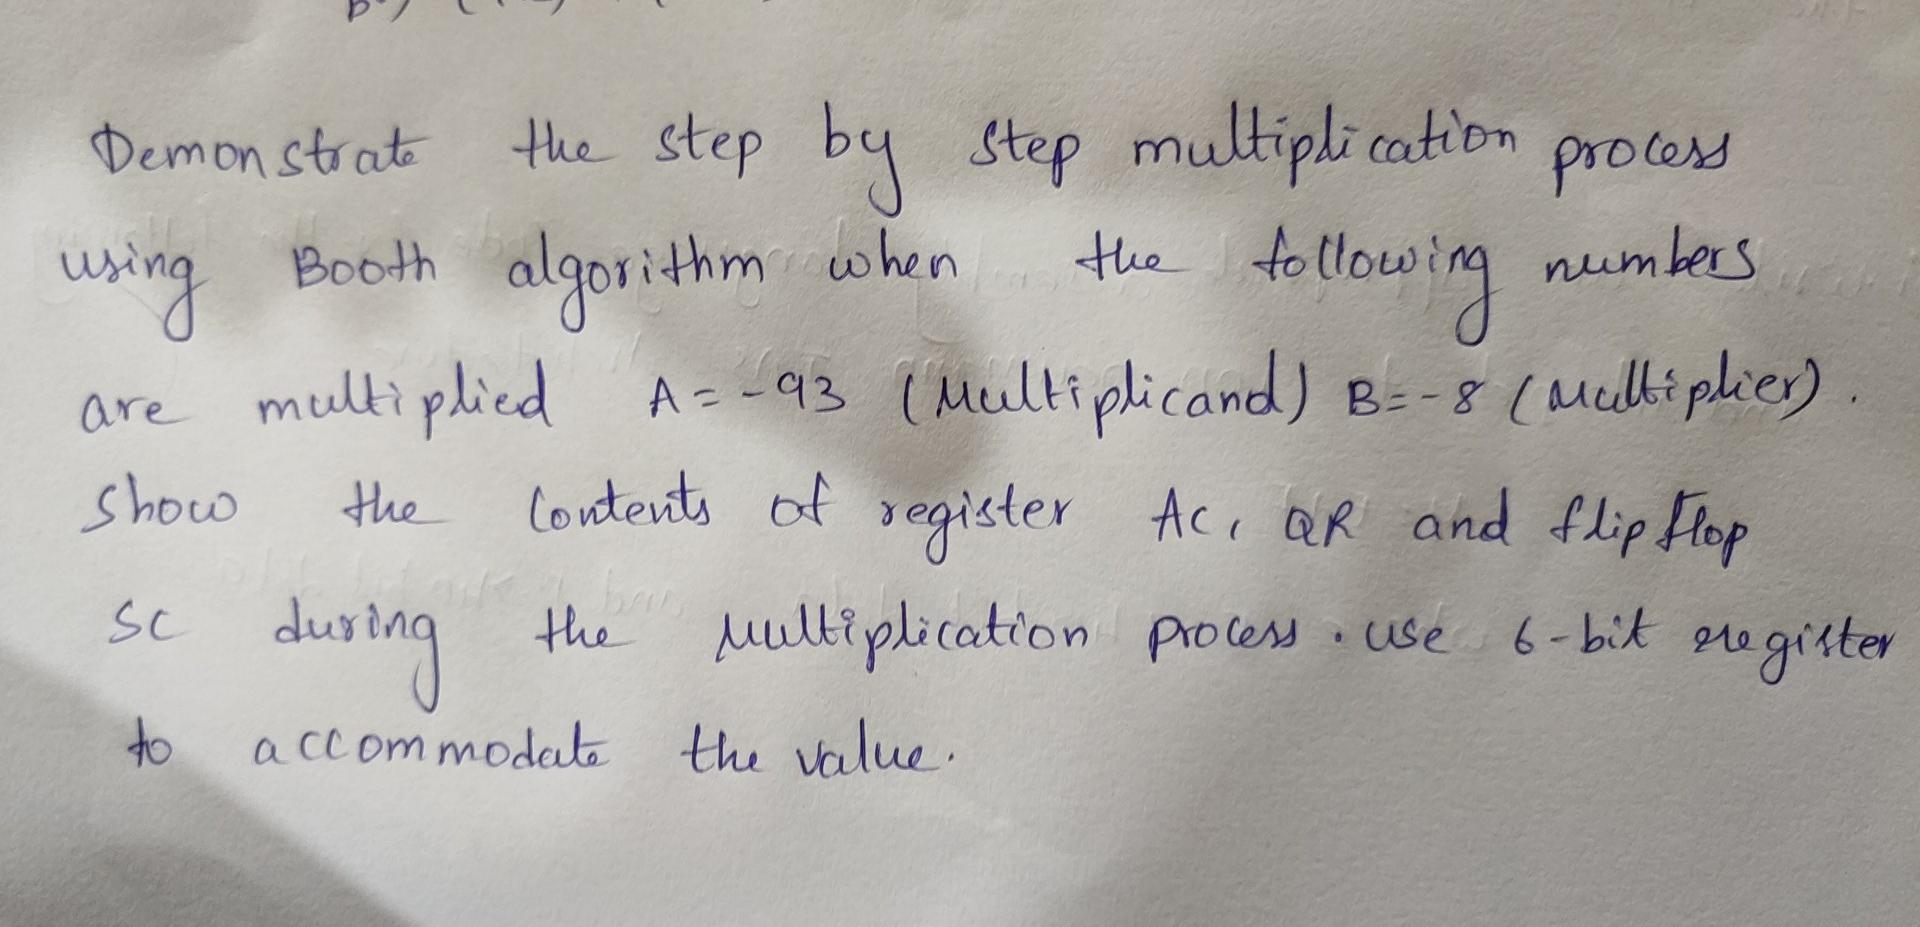 Demonstrate the step by step multiplication process
using Booth algorithm when the following numbers
are multiplied A = -93 (Multiplicand) B = -8 (Multiplier).
Show the contents of register AC, QR and flip flop
SC during the Multiplication process. Use 6-bit register
to accommodate the value.